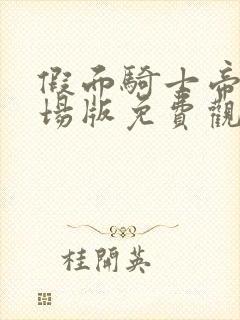 假面騎士帝
場版免費觀
桂開英